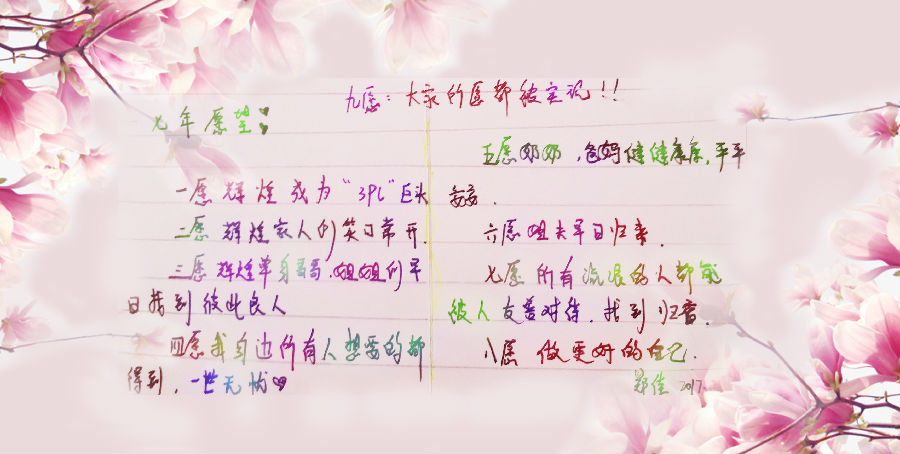 七年愿望
一愿辉煌成为“3PL”巨头
二愿辉煌家人们笑口常开.
三愿辉煌单身哥哥.姐姐们早
日找到彼此良人
四愿我身边所有人想要的都
得到.一世无忧
五愿奶奶,爸妈健健康康,平平
安安.
六愿姐夫早日归来.
七愿所有流浪的人都能
被人友善对待.找到归宿.
八愿做更好的自己.
九愿:大家的愿都被实现!!
郑佳 2017